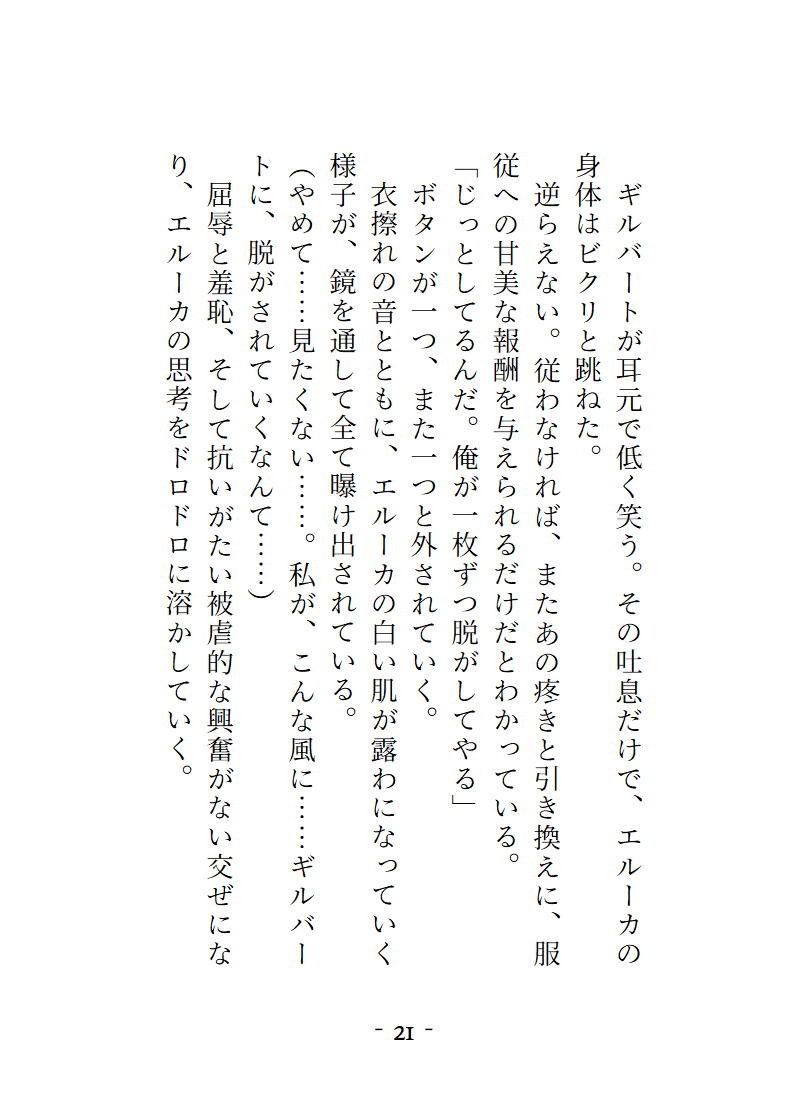 ギルバートが耳元で低く笑う。その吐息だけで、エルーカの
身体はビクリと跳ねた。
逆らえない。従わなければ、またあの疼きと引き換えに、服
従への甘美な報酬を与えられるだけだとわかっている。
「じっとしてるんだ。俺が一枚ずつ脱がしてやる」
ボタンが一つ、また一つと外されていく。
衣擦れの音とともに、エルーカの白い肌が露わになっていく
様子が、鏡を通して全て曝け出されている。
(やめて……見たくない……。私が、こんな風に……ギルバー
トに、脱がされていくなんて……)
屈辱と羞恥、そして抗いがたい被虐的な興奮がない交ぜにな
り、エルーカの思考をドロドロに溶かしていく。
- 21 -